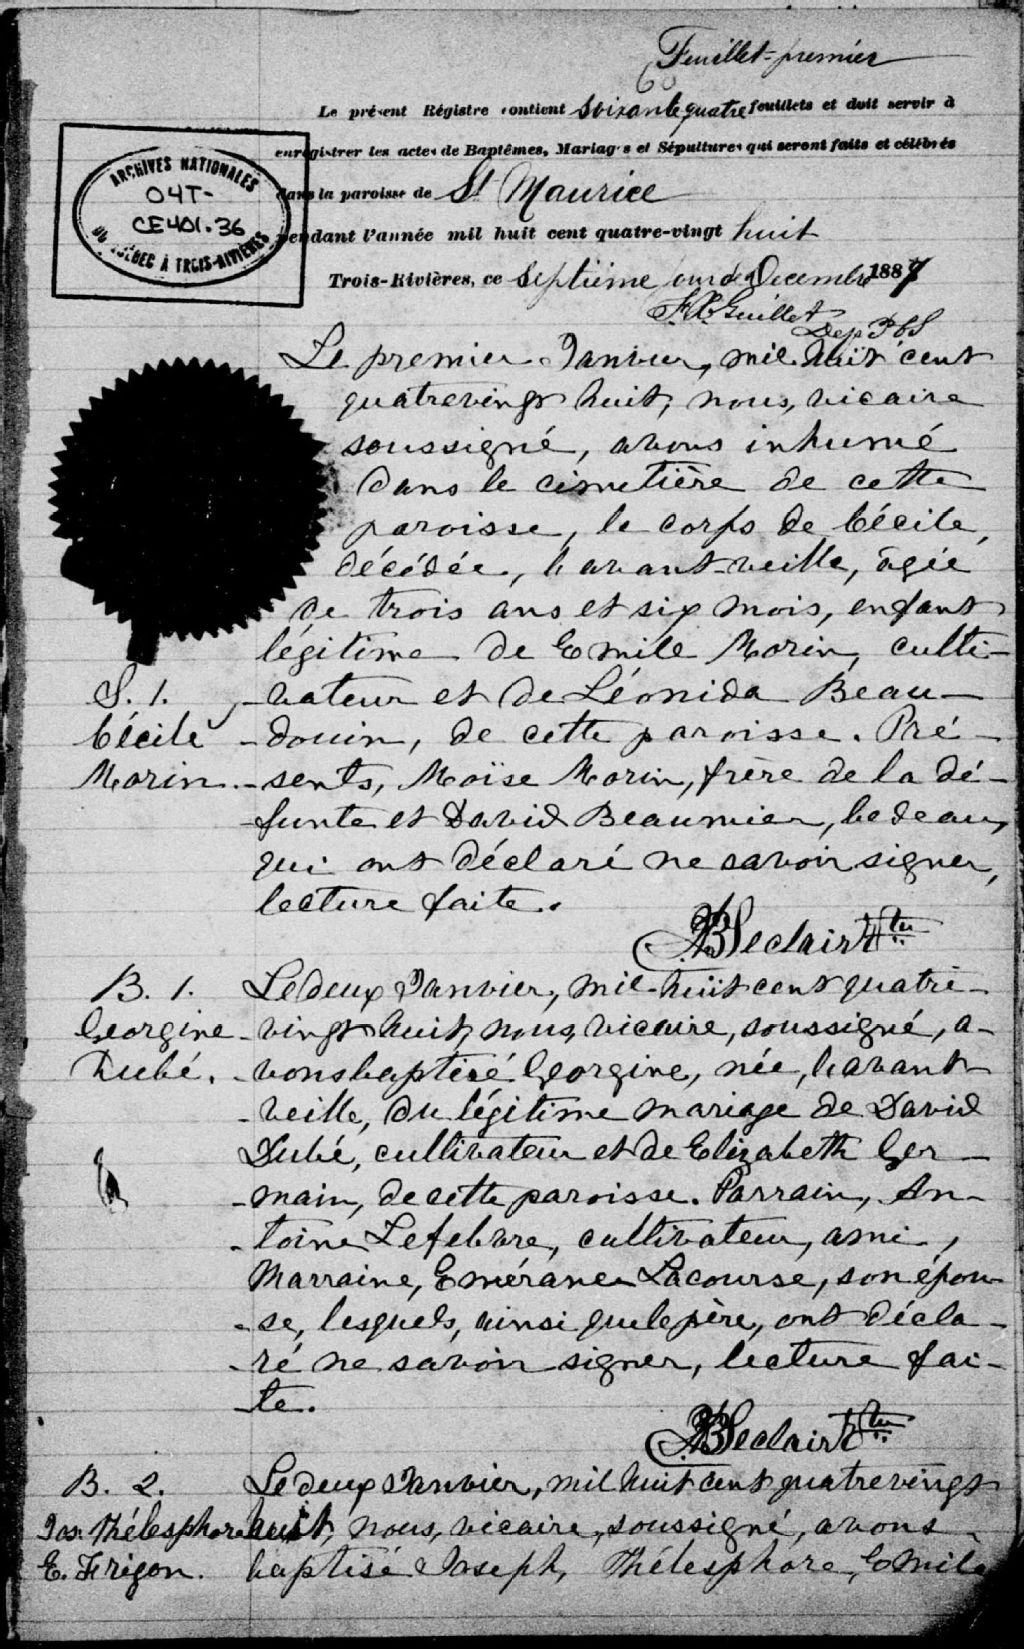 Feuillet-premier
60
Le présent Régistre contient soixante quatre feuillets et doit servir à
enregistrer les actes de Baptêmes, Mariages et Sépultures qui seront faits et célébrés
dans la paroisse de St Maurice
pendant l'année mil huit cent quatre-vingt huit
Trois-Rivières, ce septième jour de Decembre 1887
F. X. Guillet
Dep P C S
ARCHIVES NATIONALES
04T-
CE401-36
DU QUÉBEC À TROIS-RIVIÈRES
Le premier Janvier, mil huit cent
quatrevingt huit, nous, vicaire
soussigné, avons inhumé
dans le cimetière de cette
paroisse, le corps de Cécile,
décédée, l'avant-veille, âgée
de trois ans et six mois, enfant
légitime de Emile Morin, culti-
S. 1. -vateur et de Léonida Beau-
Cécile -douin, de cette paroisse. Pré-
Morin. -sents, Moïse Morin, frère de la dé-
-funte et David Beaumier, bedeau,
qui ont déclaré ne savoir signer,
lecture faite.
JB Leclair Ptre
B. 1. Le deux Janvier, mil-huit cent quatre-
Georgine -vingt huit, nous, vicaire, soussigné, a-
Dubé. -vons baptisé Georgine, née, l'avant-
-veille, du légitime mariage de David
Dubé, cultivateur et de Elizabeth Ger-
-main, de cette paroisse. Parrain, An-
-toine Lefebvre, cultivateur, ami,
Marraine, Emérane Lacourse, son épou-
-se, lesquels, ainsi que le père, ont décla-
-ré ne savoir signer, lecture fai-
-te.
JB Leclair Ptre
B. 2. Le deux Janvier, mil huit cent quatrevingt
Jos. Thélesphore huit, nous, vicaire, soussigné, avons
E. Frigon. baptisé Joseph, Thélesphore, Emile